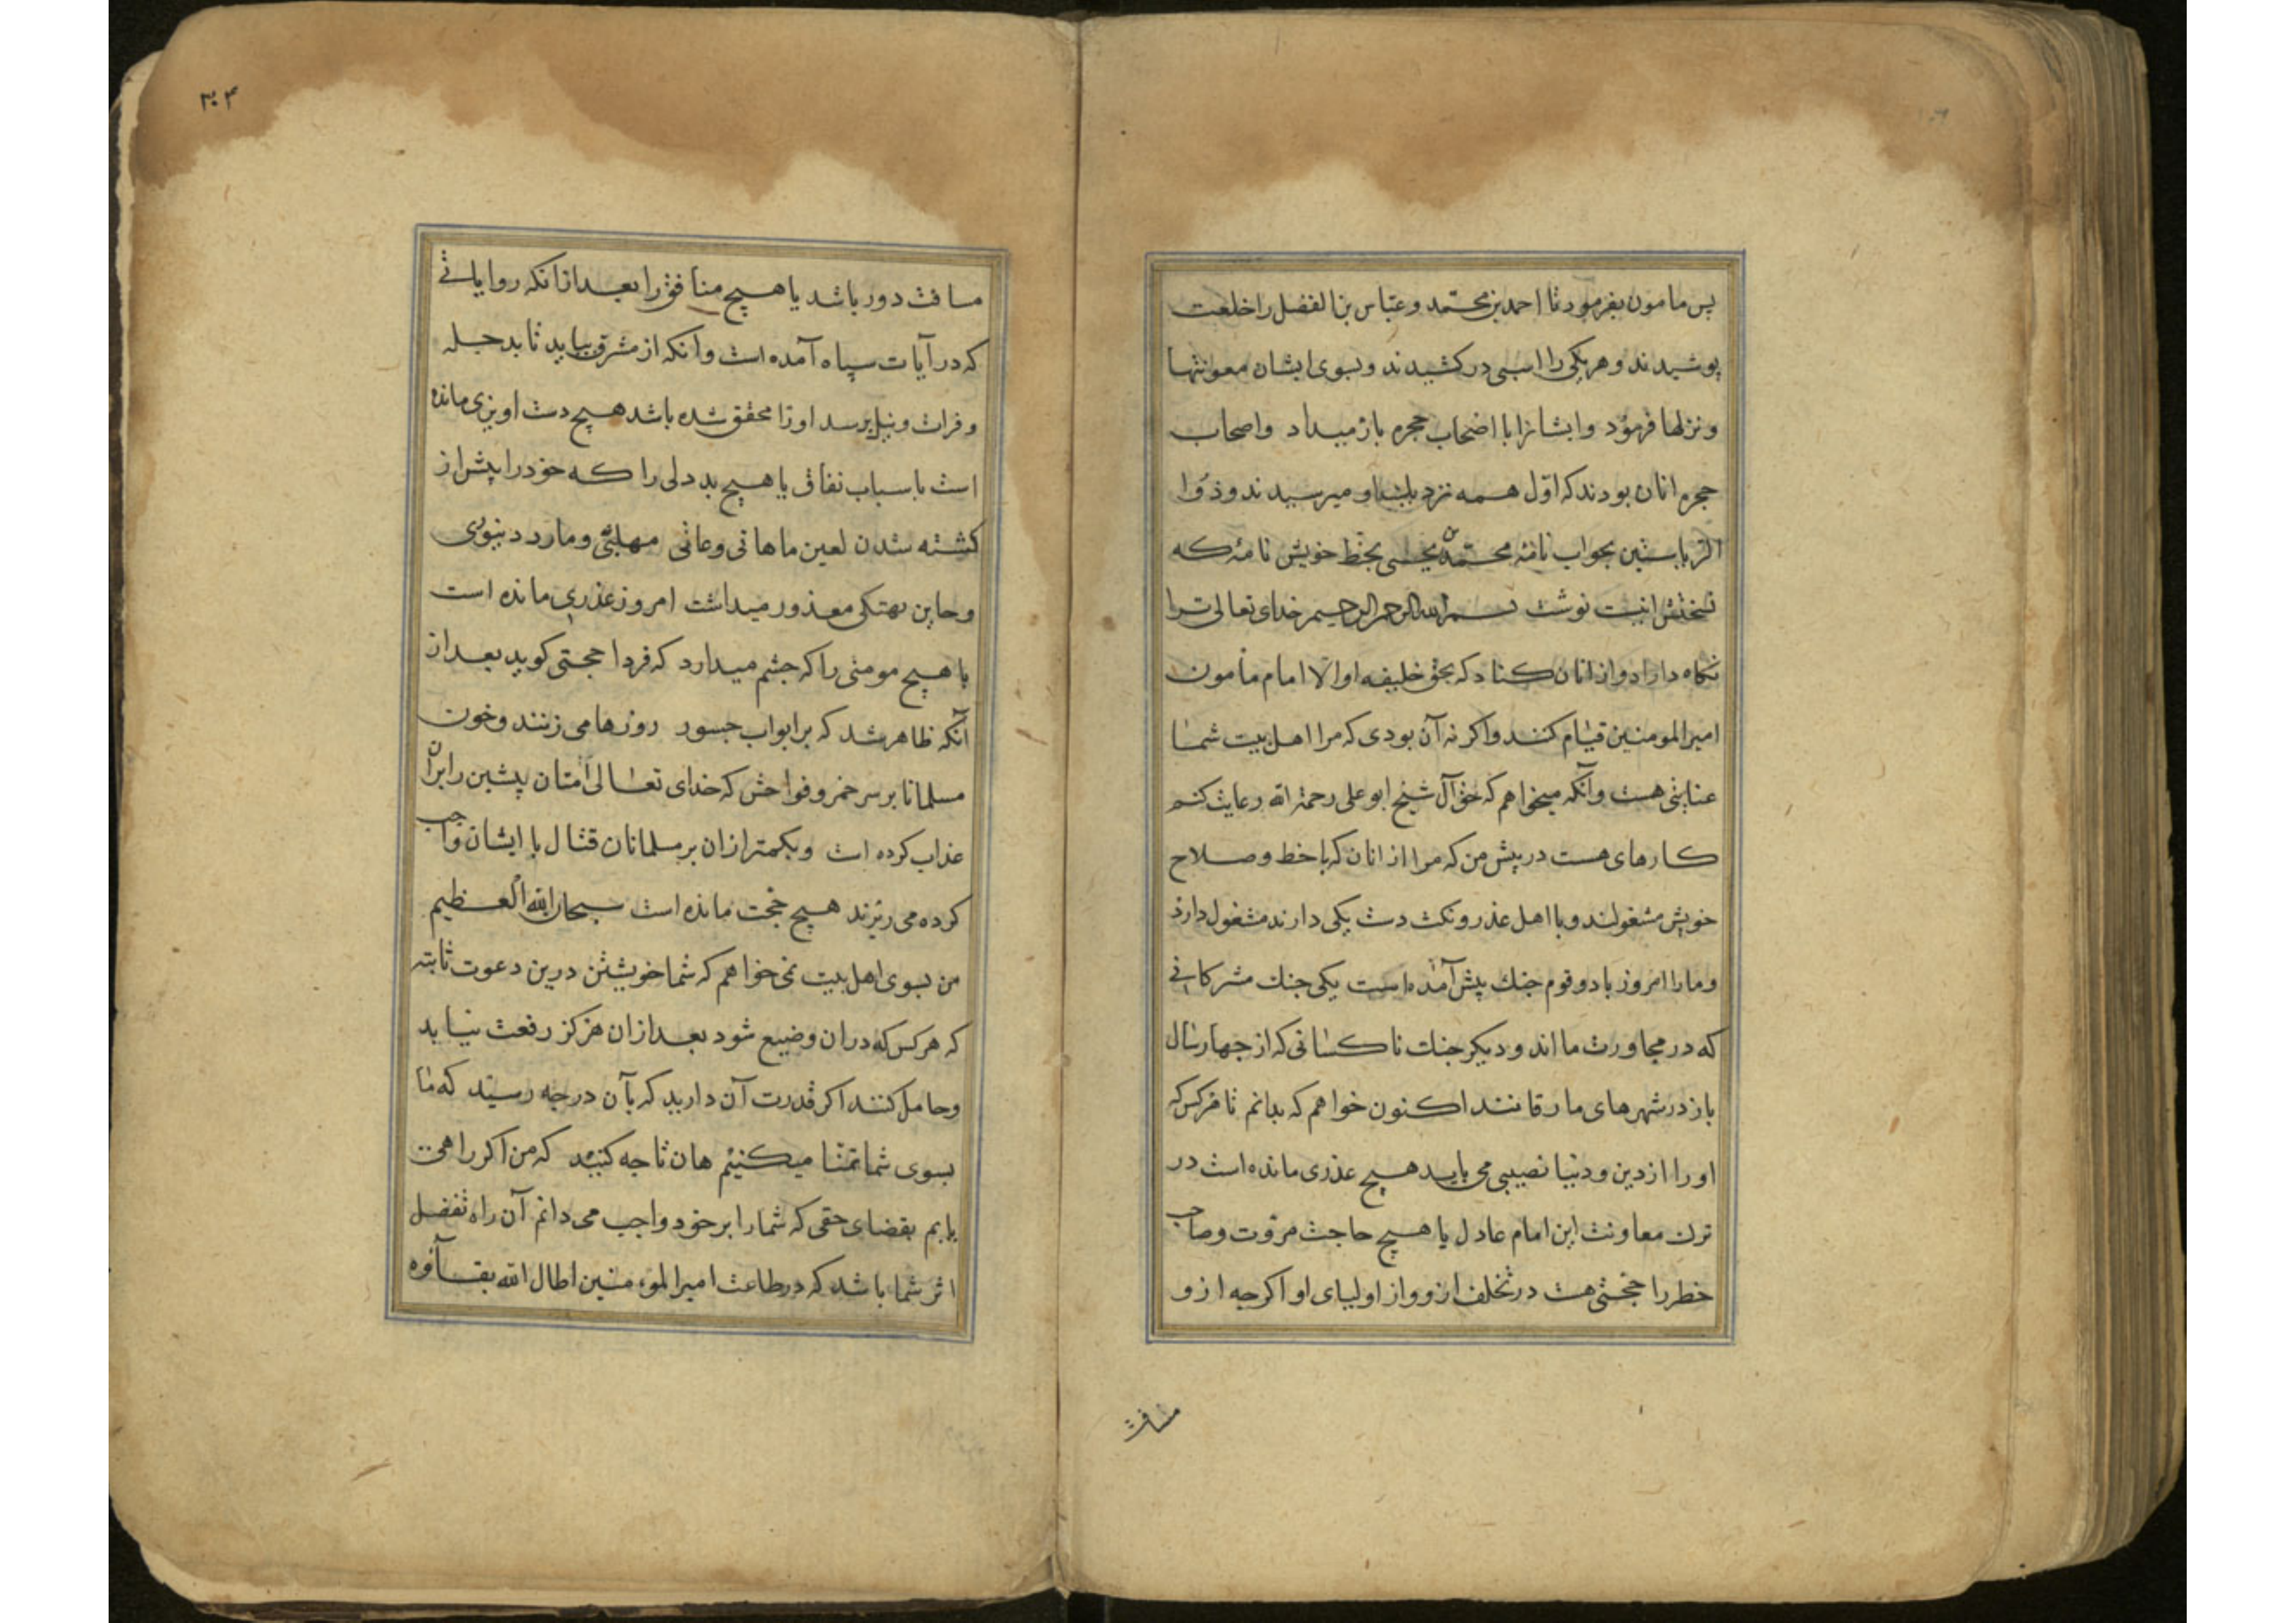 پس مامون بفرمود تا احمد بن محمّد و عبّاس بن الفضل را خلعت
پوشیدند و هر یکی را اسبی در کشیدند و بسوی ایشان معونتها
و نزلها فرمود و ایشانرا با اصحاب حجره باز میداد و اصحاب
حجره انان بودند که اوّل همه نزد میرسیدند و ذوا
الریاستین بجواب نامهٔ محمّد بن یحیی بخط خویش نامهٔ که
نسختش اینست نوشت بسم الله الرحمن الرحیم خدای تعالی ترا
نگاه داراد و از انان کناد که بحق خلیفه او الا امام مأمون
امیر المومنین قیام کنند و اکر نه آن بودی که مرا اهل بیت شما
عنایتی هست و آنکه میخواهم که حق آل شیخ ابو علی رحمة الله رعایت کنم
کارهای هست در پیش من که مرا از انان که با خط و صلاح
خویش مشغولند و با اهل غدر و نکث دست یکی دارند مشغول دارد
و مارا امروز با دو قوم جنك پیش آمده است یکی جنك مشرکانی
که در مجاورت ما اند و دیکر جنك ناکسانی که از چهار سال
باز در شهرهای ما رقا نند اکنون خواهم که بدانم تا هر کس که
اورا از دین و دنیا نصیبی می باید هیچ عذری مانده است در
ترك معاونت این امام عادل یا هیچ حاجت مروّت و صاحب
خطر را حجّتی هست در تخلف از و و از اولیای او اکر چه از و
مسافت
۳۰۴
مسافت دور باشد یا هیچ منافق را بعد از انکه روایاتی
که در آیات سیاه آمده است و آنکه از مشرق بیاید تا بدجله
و فرات و نیل برسد اورا محقق شده باشد هیچ دست اویزی مانده
است باسباب نفاق یا هیچ بد دلی را که خود را پیش از
کشته شدن لعین ماهانی و عاتی مهلبی و مارد دینوری
و حاین بهتکی معذور میداشت امروز عذری مانده است
یا هیچ مومنی را که چشم میدارد که فردا حجتی کوید بعد از
آنکه ظاهر شد که بر ابواب جسور روزها می زنند و خون
مسلمانا بر سر خمر و فواحش که خدای تعالی امتان پیشین را بران
عذاب کرده است و بکمتر از ان بر مسلمانان قتال با ایشان واجب
کرده می ریزند هیچ حجّت مانده است سبحان الله العظیم
من بسوی اهل بیت نمی خواهم که شما خویشتن درین دعوت ثابته
که هر کس که در ان وضیع شود بعد از ان هرکز رفعت نیابد
و حامل کنند اکر قدرت آن دارید که بآن درجه رسید که ما
بسوی شما تمنا میکنیم هان تا چه کنید که من اکر راهی
یابم بقضای حقی که شما را بر خود واجب می دانم آن راه تفضل
اثر شما باشد که در طاعت امیر المومنین اطال الله بقاؤه